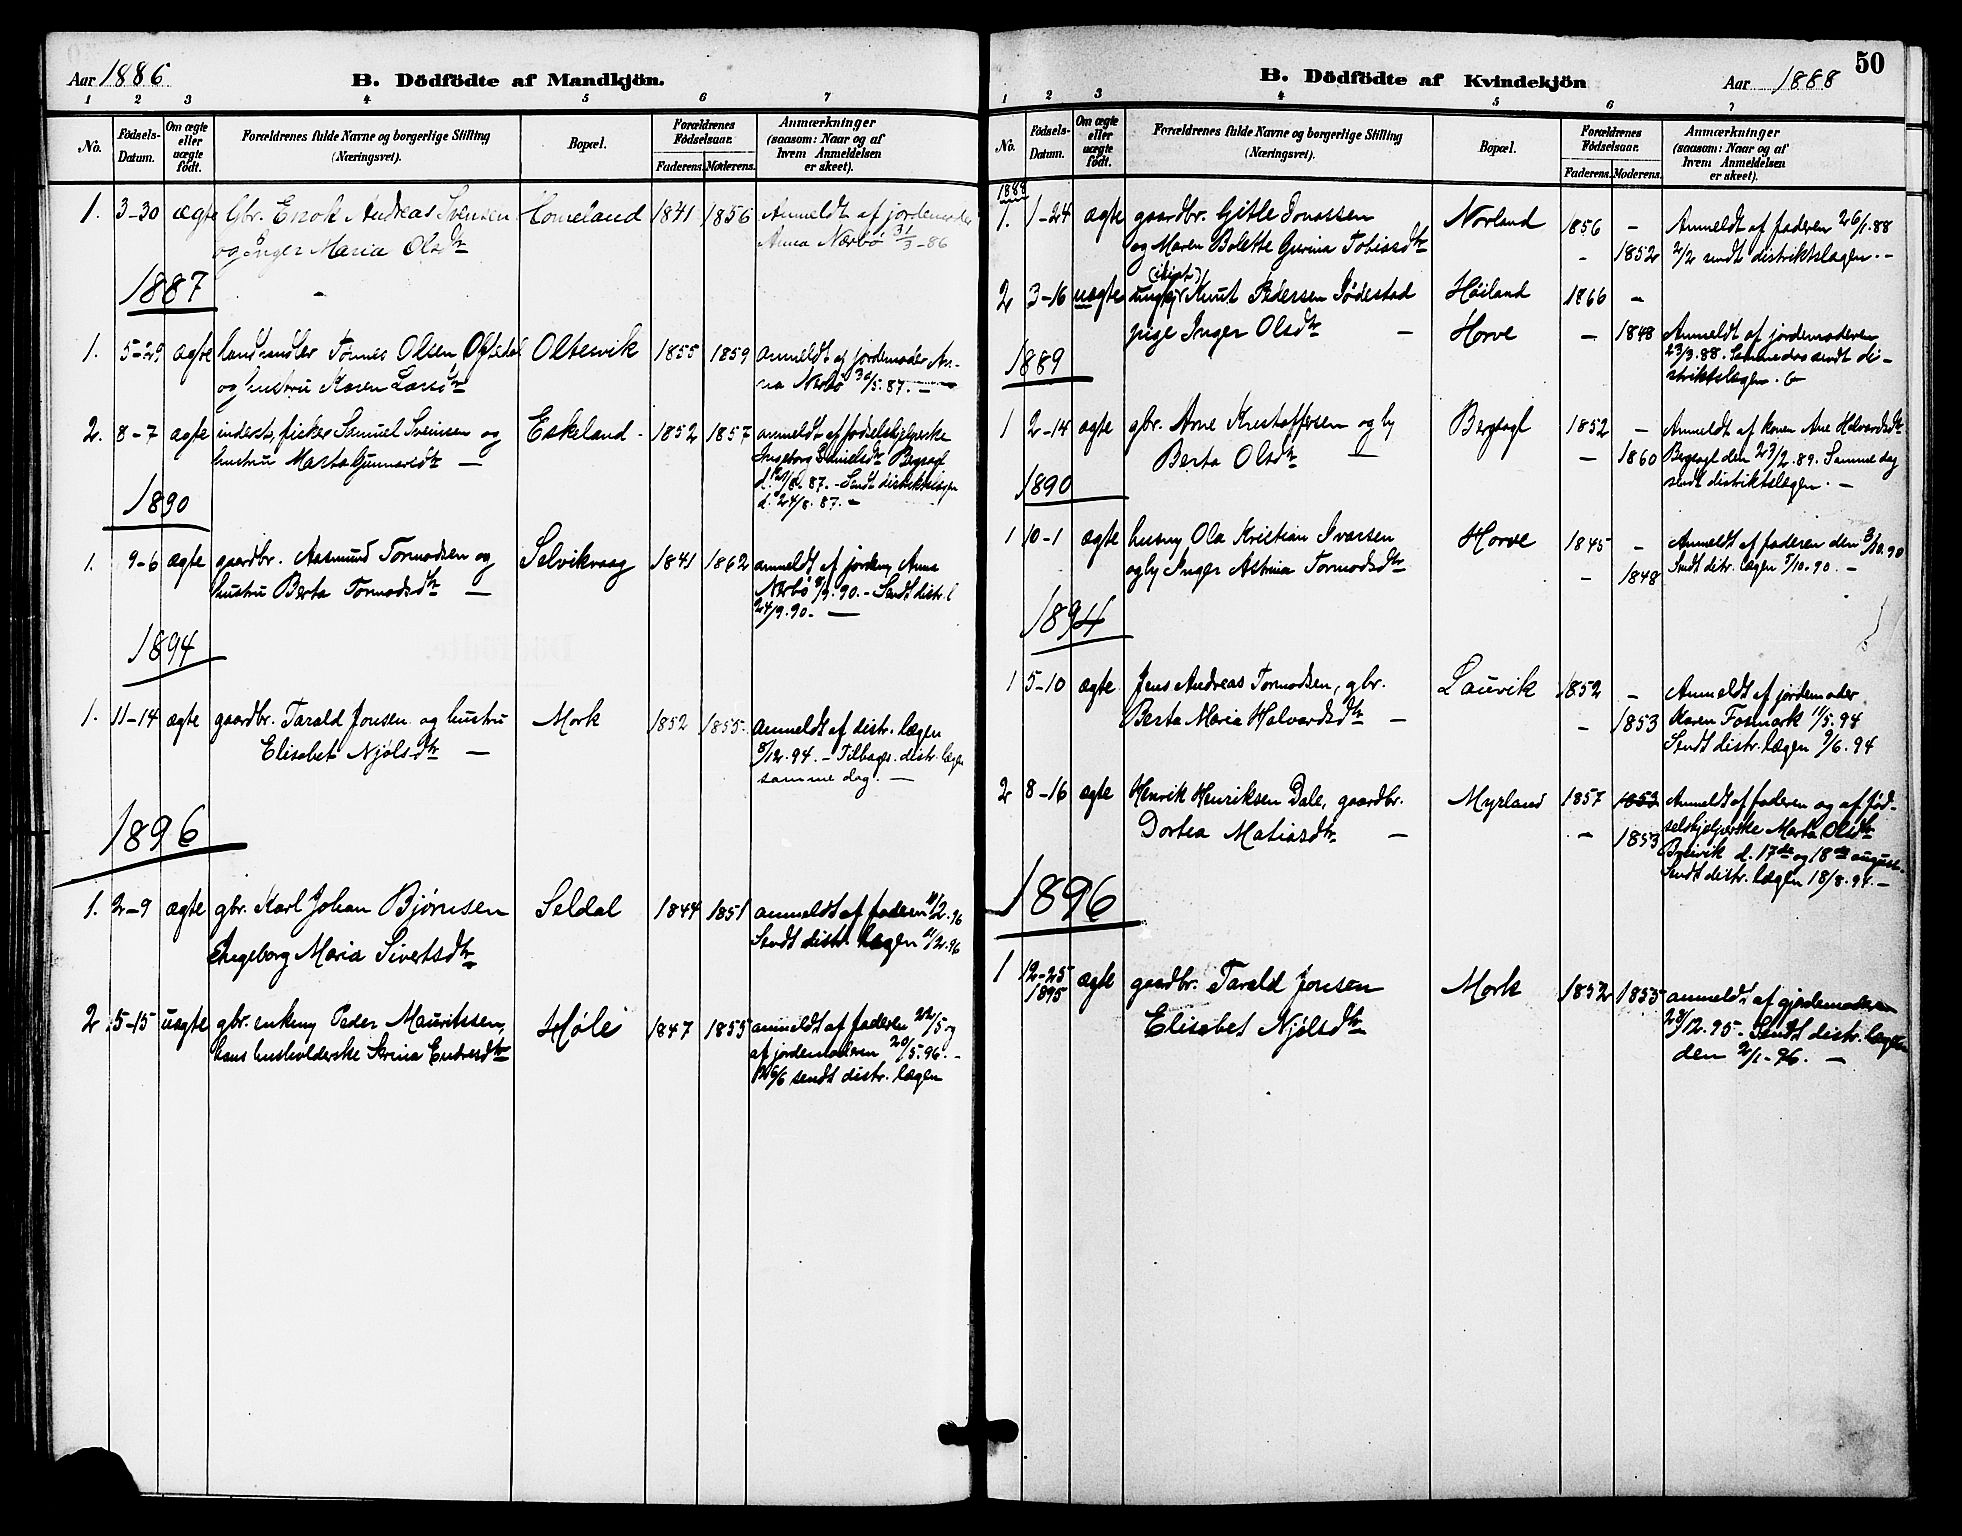 Aar 1886 B. Dödfödte af Mandkjön.
1 2 3 4 5 6 7
No. Födsels-Datum. Om ægte eller uægte födt. Forældrenes fulde Navne og borgerlige Stilling (Næringsvei). Bopæl. Forældrenes Födselsaar. Faderens. Moderens. Anmærkninger (saasom: Naar og af hvem Anmeldelsen er skeet).
1. 3-30 ægte Gbr. Enok Andreas Svensen Homeland 1841 1856 Anmeldt af jordemoder
og Inger Maria Olsdtr Anna Nærbø 31/3-86
1887
1. 5-29 ægte landhandler Tønnes Olsen Oftedal Oltesvik 1855 1859 anmeldt af jordemoder An-
og hustru Karen Larsdtr na Nærbø 30/5.87. —
2. 8-7 ægte inderst, fisker Samuel Sveinsen og Eskeland - 1852 1857 anmeldt af fødselshjelperske
hustru Marta Gunnarsdtr — Ingeborg Danielsdtr Bergsagl
d. /8.87. - Sendt distriktslægen
d. 24/8.87. —
1890
1. 9-6 ægte gaardbr. Aasmund Tormodsen og Selvikvaag 1841 1862 anmeldt af jordem. Anna
hustru Berta Tormodsdtr — Nærbø 8/9.90. - Sendt distr. l
24/9.90. —
1894
1. 11-14 ægte gaardbr. Tarald Jonsen og hustru Mork 1852 1855. Anmeldt af distr. lægen
Elisabet Njølsdtr — 8/12.94. - Tilbages. distr. lægen
samme dag. —
1896
1. 2-9 ægte gbr. Karl Johan Bjørnsen Seldal 1844 1851 anmeldt af faderen 11/2.96
Ingeborg Maria Sivertsdtr Sendt distr. lægen 11/2.96
2 5-15 uægte gbr. enkem. Peder Mauritssen, Høle 1847 1855 anmeldt af faderen 22/5 og
hans husholderske Serina Endresdtr af jordemoderen 20/5.96. -
6/6 sendt distr. lægen
50
B. Dödfödte af Kvindekjön Aar 1888
1 2 3 4 5 6 7
No. Födsels-Datum. Om ægte eller uægte födt. Forældrenes fulde Navne og borgerlige Stilling (Næringsvei). Bopæl. Forældrenes Födselsaar. Faderens. Moderens. Anmærkninger (saasom: Naar og af hvem Anmeldelsen er skeet).
1888
1. 1-24 ægte gaardbr. Gitle Jonassen Norland 1856 - Anmeldt af faderen 26/1.88
og Maren Bolette Gurina Tobiasdtr - 1852 2/2 sendt distriktslægen. -
2 3-16 uægte ungkar Knut Pedersen Jødestad Høiland 1866 -
pige Inger Olsdtr — Horve - 1848 Anmeldt af jordemoderen
23/3.88. Sammedag sendt di-
striktslægen.
1889
1 2-14 ægte gbr. Arne Kristoffersen og h Bergsagl 1852 - Anmeldt af konen Ane Halvardsdtr
Berta Olsdtr — - 1860 Bergsagl den 23/2.89. Samme dag
sendt distriktslægen. —
1890
1 10-1 ægte husm. Ola Kristian Ivarsen Horve 1845 - Anmeldt af faderen den 3/10.90
og h Inger Astrina Tormodsdtr - 1848 Sendt distr. lægen /10.90. -
1894
1 5-10 ægte Jens Andreas Tormodsen, gbr. Lauvik 1852 - Anmeldt af jordemoder
Berta Maria Halvardsdtr — - 1853 Karen Fosmark 11/5.94
Sendt distr. lægen 9/6.94
2 8-16 ægte Henrik Henriksen Dale, gaardbr. Myrland 1857 1853 Anmeldt af faderen og af fød-
Dortea Matiasdtr — - 1853 selshjelperske Marta Olsdtr
d. 17de og 18de august.
Sendt distr. lægen 18/8.94. -
1896
1 12-25 1895 ægte gaardbr. Tarald Jonsen Mork 1852 1855 anmeldt af gjordemoderen
Elisabet Njølsdtr 28/12.95 - Sendt distr. lægen
den 2/1-96. —